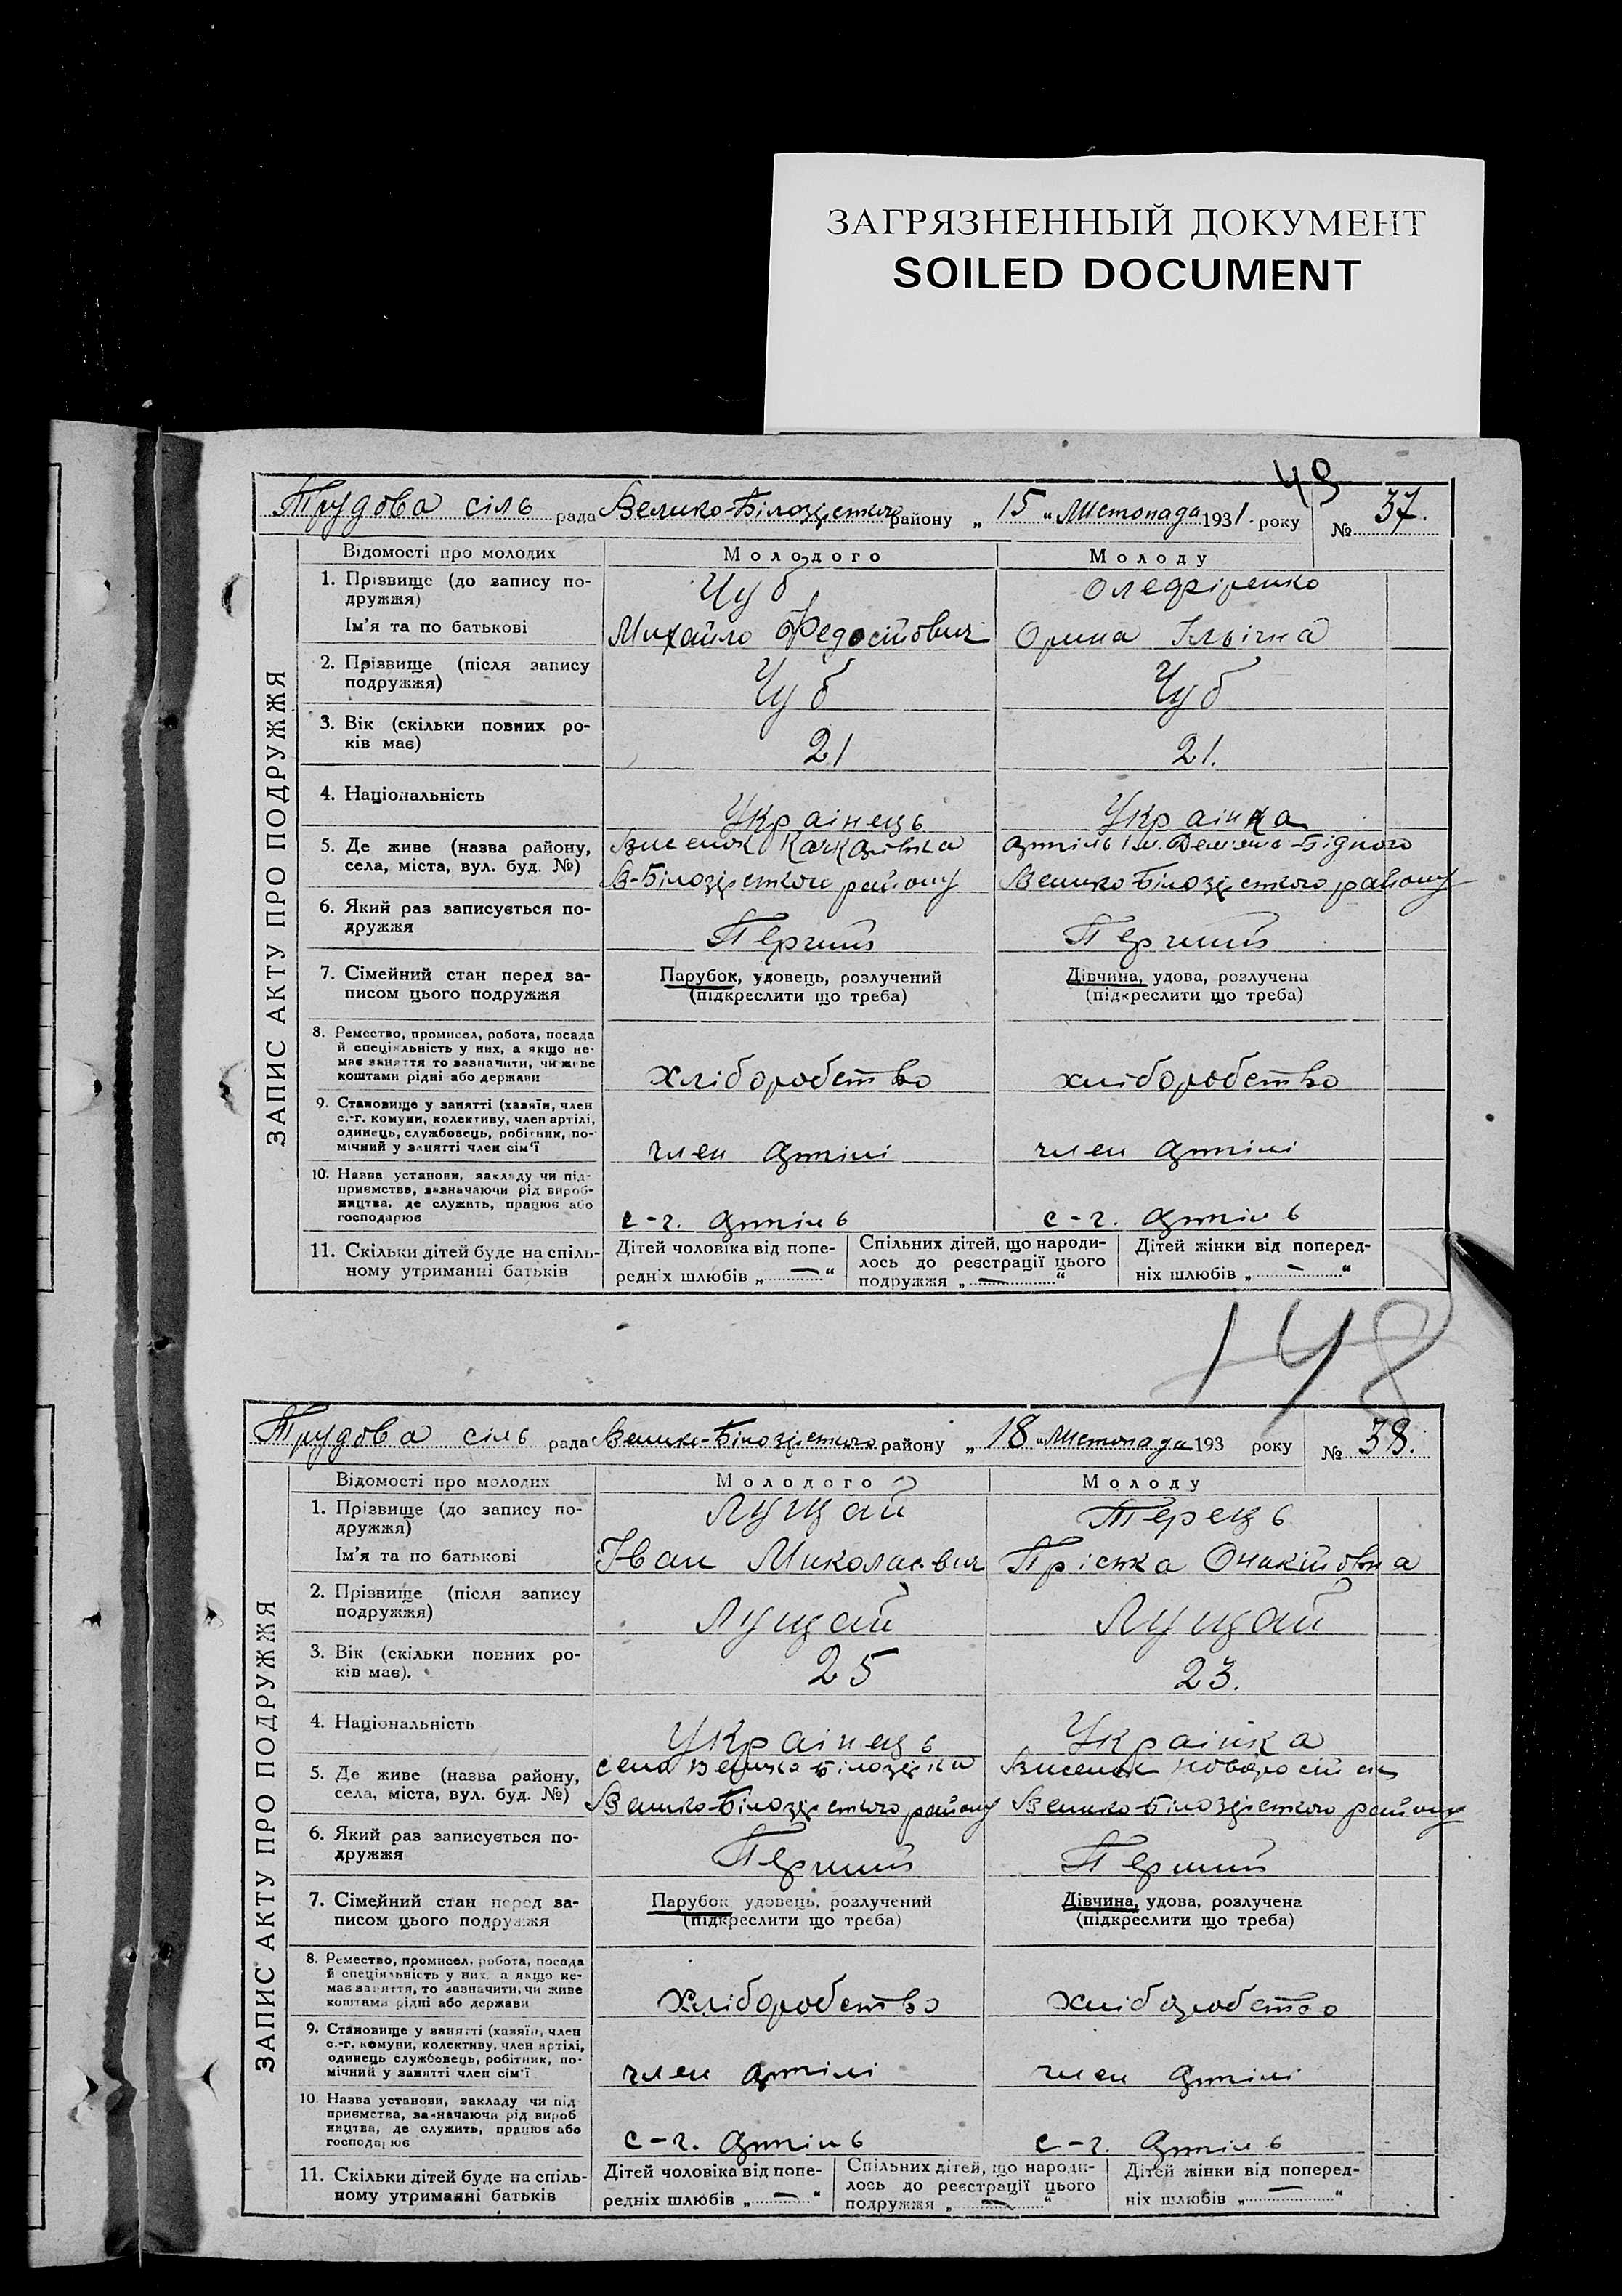 ЗАГРЯЗНЕННЫЙ ДОКУМЕНТ
SOILED DOCUMENT
49
Трудова сіль рада Велико-Білозірського району „15“ Листопада 1931. року № 37.
ЗАПИС АКТУ ПРО ПОДРУЖЖЯ
Відомості про молодих Молодого Молоду
1. Прізвище (до запису по-
дружжя) Чуб Олефіренко
Ім'я та по батькові Михайло Федосійович Орина Ільїчна
2. Прізвище (після запису
подружжя) Чуб Чуб
3. Вік (скільки повних ро-
ків має) 21 21.
4. Національність Українець Українка
5. Де живе (назва району, Висілок артіль ім. Демяна-Бідного
села, міста, вул. буд. №) В-Білозірського району Велико Білозірського району
6. Який раз записується по-
дружжя Перший Перший
7. Сімейний стан перед за- Парубок, удовець, розлучений Дівчина, удова, розлучена
писом цього подружжя (підкреслити що треба) (підкреслити що треба)
8. Ремество, промисел, робота, посада
й спеціяльність у них, а якщо не-
має заняття то зазначити, чи живе
коштами рідні або держави хліборобство хліборобство
9. Становище у занятті (хазяїн, член
с.-г. комуни, колективу, член артілі,
одинець, службовець, робітник, по-
мічний у занятті член сім'ї член артілі член артілі
10. Назва установи, закладу чи під-
приємства, зазначаючи рід вироб-
ництва, де служить, працює або
господарює с-г. артіль с-г. артіль
11. Скільки дітей буде на спіль- Дітей чоловіка від попе- Спільних дітей, що народи- Дітей жінки від поперед-
ному утриманні батьків редніх шлюбів „—“ лось до реєстрації цього ніх шлюбів „—“
подружжя „—“
148
Трудова сіль рада Велико-Білозірського району „18“ Листопада 193 року № 38.
ЗАПИС АКТУ ПРО ПОДРУЖЖЯ
Відомості про молодих Молодого Молоду
1. Прізвище (до запису по-
дружжя) Лущай Терець
Ім'я та по батькові Іван Миколаєвич Пріська
2. Прізвище (після запису
подружжя) Лущай Лущай
3. Вік (скільки повних ро-
ків має). 25 23.
4. Національність Українець Українка
5. Де живе (назва району, село Велика Білозірка Висілок
села, міста, вул. буд. №) Велико-Білозірського району Велико-Білозірського району
6. Який раз записується по-
дружжя Перший Перший
7. Сімейний стан перед за- Парубок удовець, розлучений Дівчина, удова, розлучена
писом цього подружжя (підкреслити що треба) (підкреслити що треба)
8. Ремество, промисел, робота, посада
й спеціяльність у них, а якщо не-
має заняття, то зазначити, чи живе
коштами рідні або держави Хліборобство хліборобство
9. Становище у занятті (хазяїн, член
с.-г. комуни, колективу, член артілі,
одинець службовець, робітник, по-
мічний у занятті член сім'ї член артілі член артілі
10. Назва установи, закладу чи під
приємства, зазначаючи рід вироб
ництва, де служить, працює або
господарює с-г. артіль с-г. артіль
11. Скільки дітей буде на спіль- Дітей чоловіка від попе- Спільних дітей, що народи- Дітей жінки від поперед-
ному утриманні батьків редніх шлюбів „—“ лось до реєстрації цього ніх шлюбів „—“
подружжя „—“